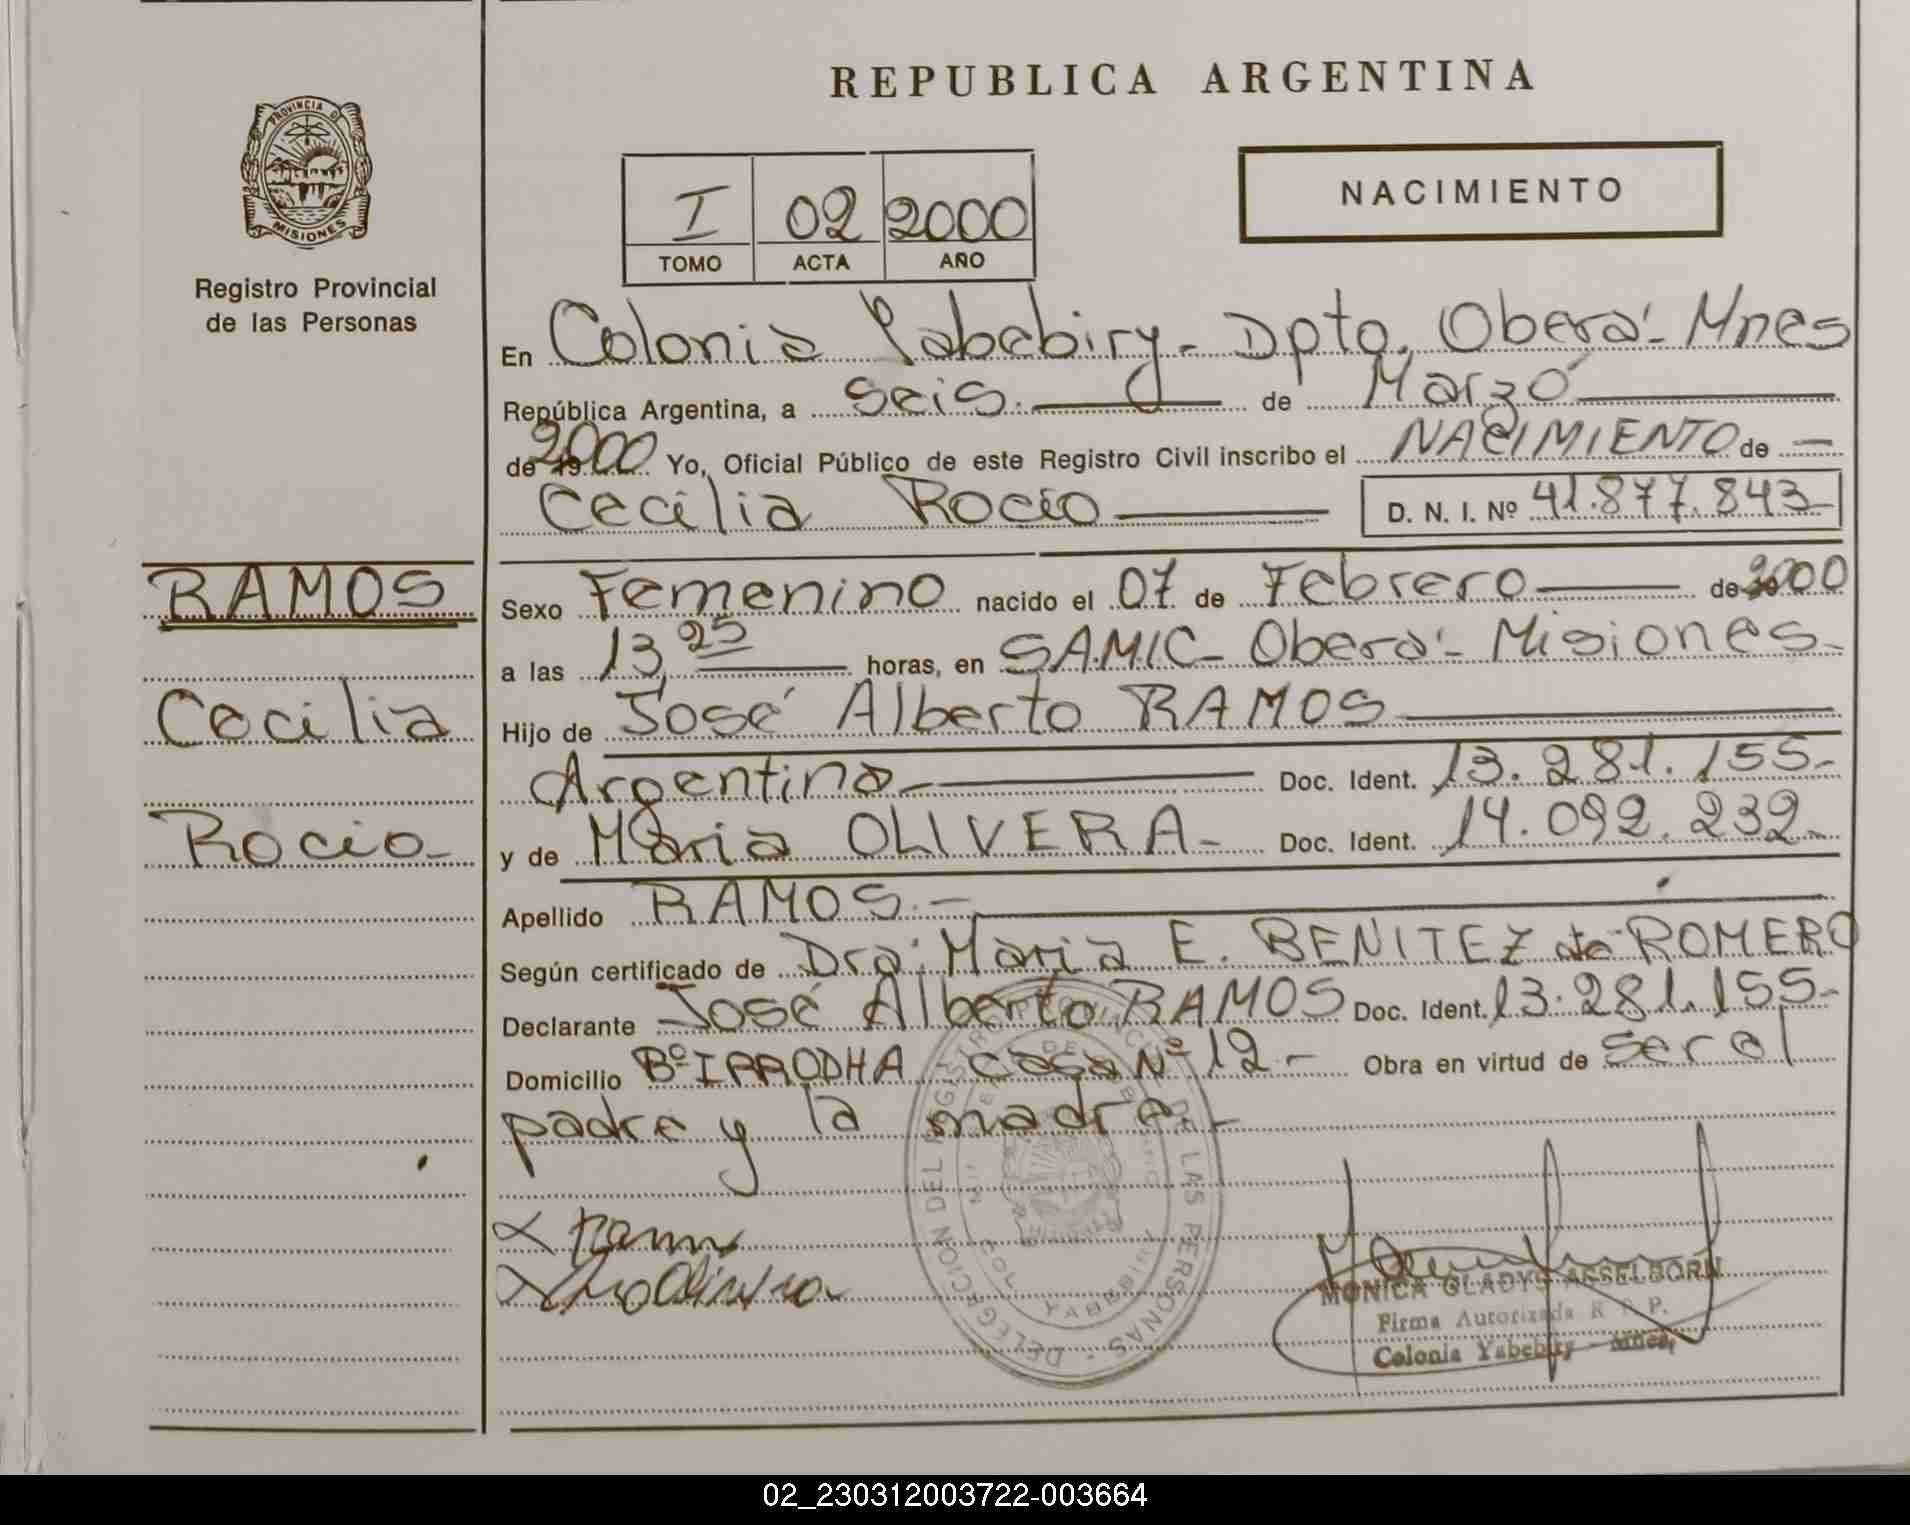 REPUBLICA ARGENTINA
PROVINCIA D
MISIONES
Registro Provincial
de las Personas
I 02 2000
TOMO ACTA AÑO
NACIMIENTO
En Colonia Yabebiry - Dpto. Oberá - Mnes
República Argentina, a seis. de Marzo
de 2000 Yo, Oficial Público de este Registro Civil inscribo el NACIMIENTO de
Cecilia Rocio D. N. I. Nº 41.877.843
RAMOS
Cecilia
Rocio
Sexo Femenino nacido el 07 de Febrero de 2000
a las 13,25 horas, en SAMIC - Oberá - Misiones -
Hijo de José Alberto RAMOS
Argentino Doc. Ident. 13.281.155-
y de Maria OLIVERA - Doc. Ident. 14.092.232-
Apellido RAMOS.-
Según certificado de Dra: Maria E. BENITEZ de ROMERO
Declarante José Alberto RAMOS Doc. Ident. 13.281.155-
Domicilio Bº IPRODHA casa Nº 12.- Obra en virtud de ser el
padre y la madre.-
DELEGACION DEL REGISTRO PROVINCIAL DE LAS PERSONAS
COL. YABEBIRY
MONICA GLADYS ASSELBORN
Firma Autorizada R. P. P.
Colonia Yabebiry - Mnes.
02_230312003722-003664